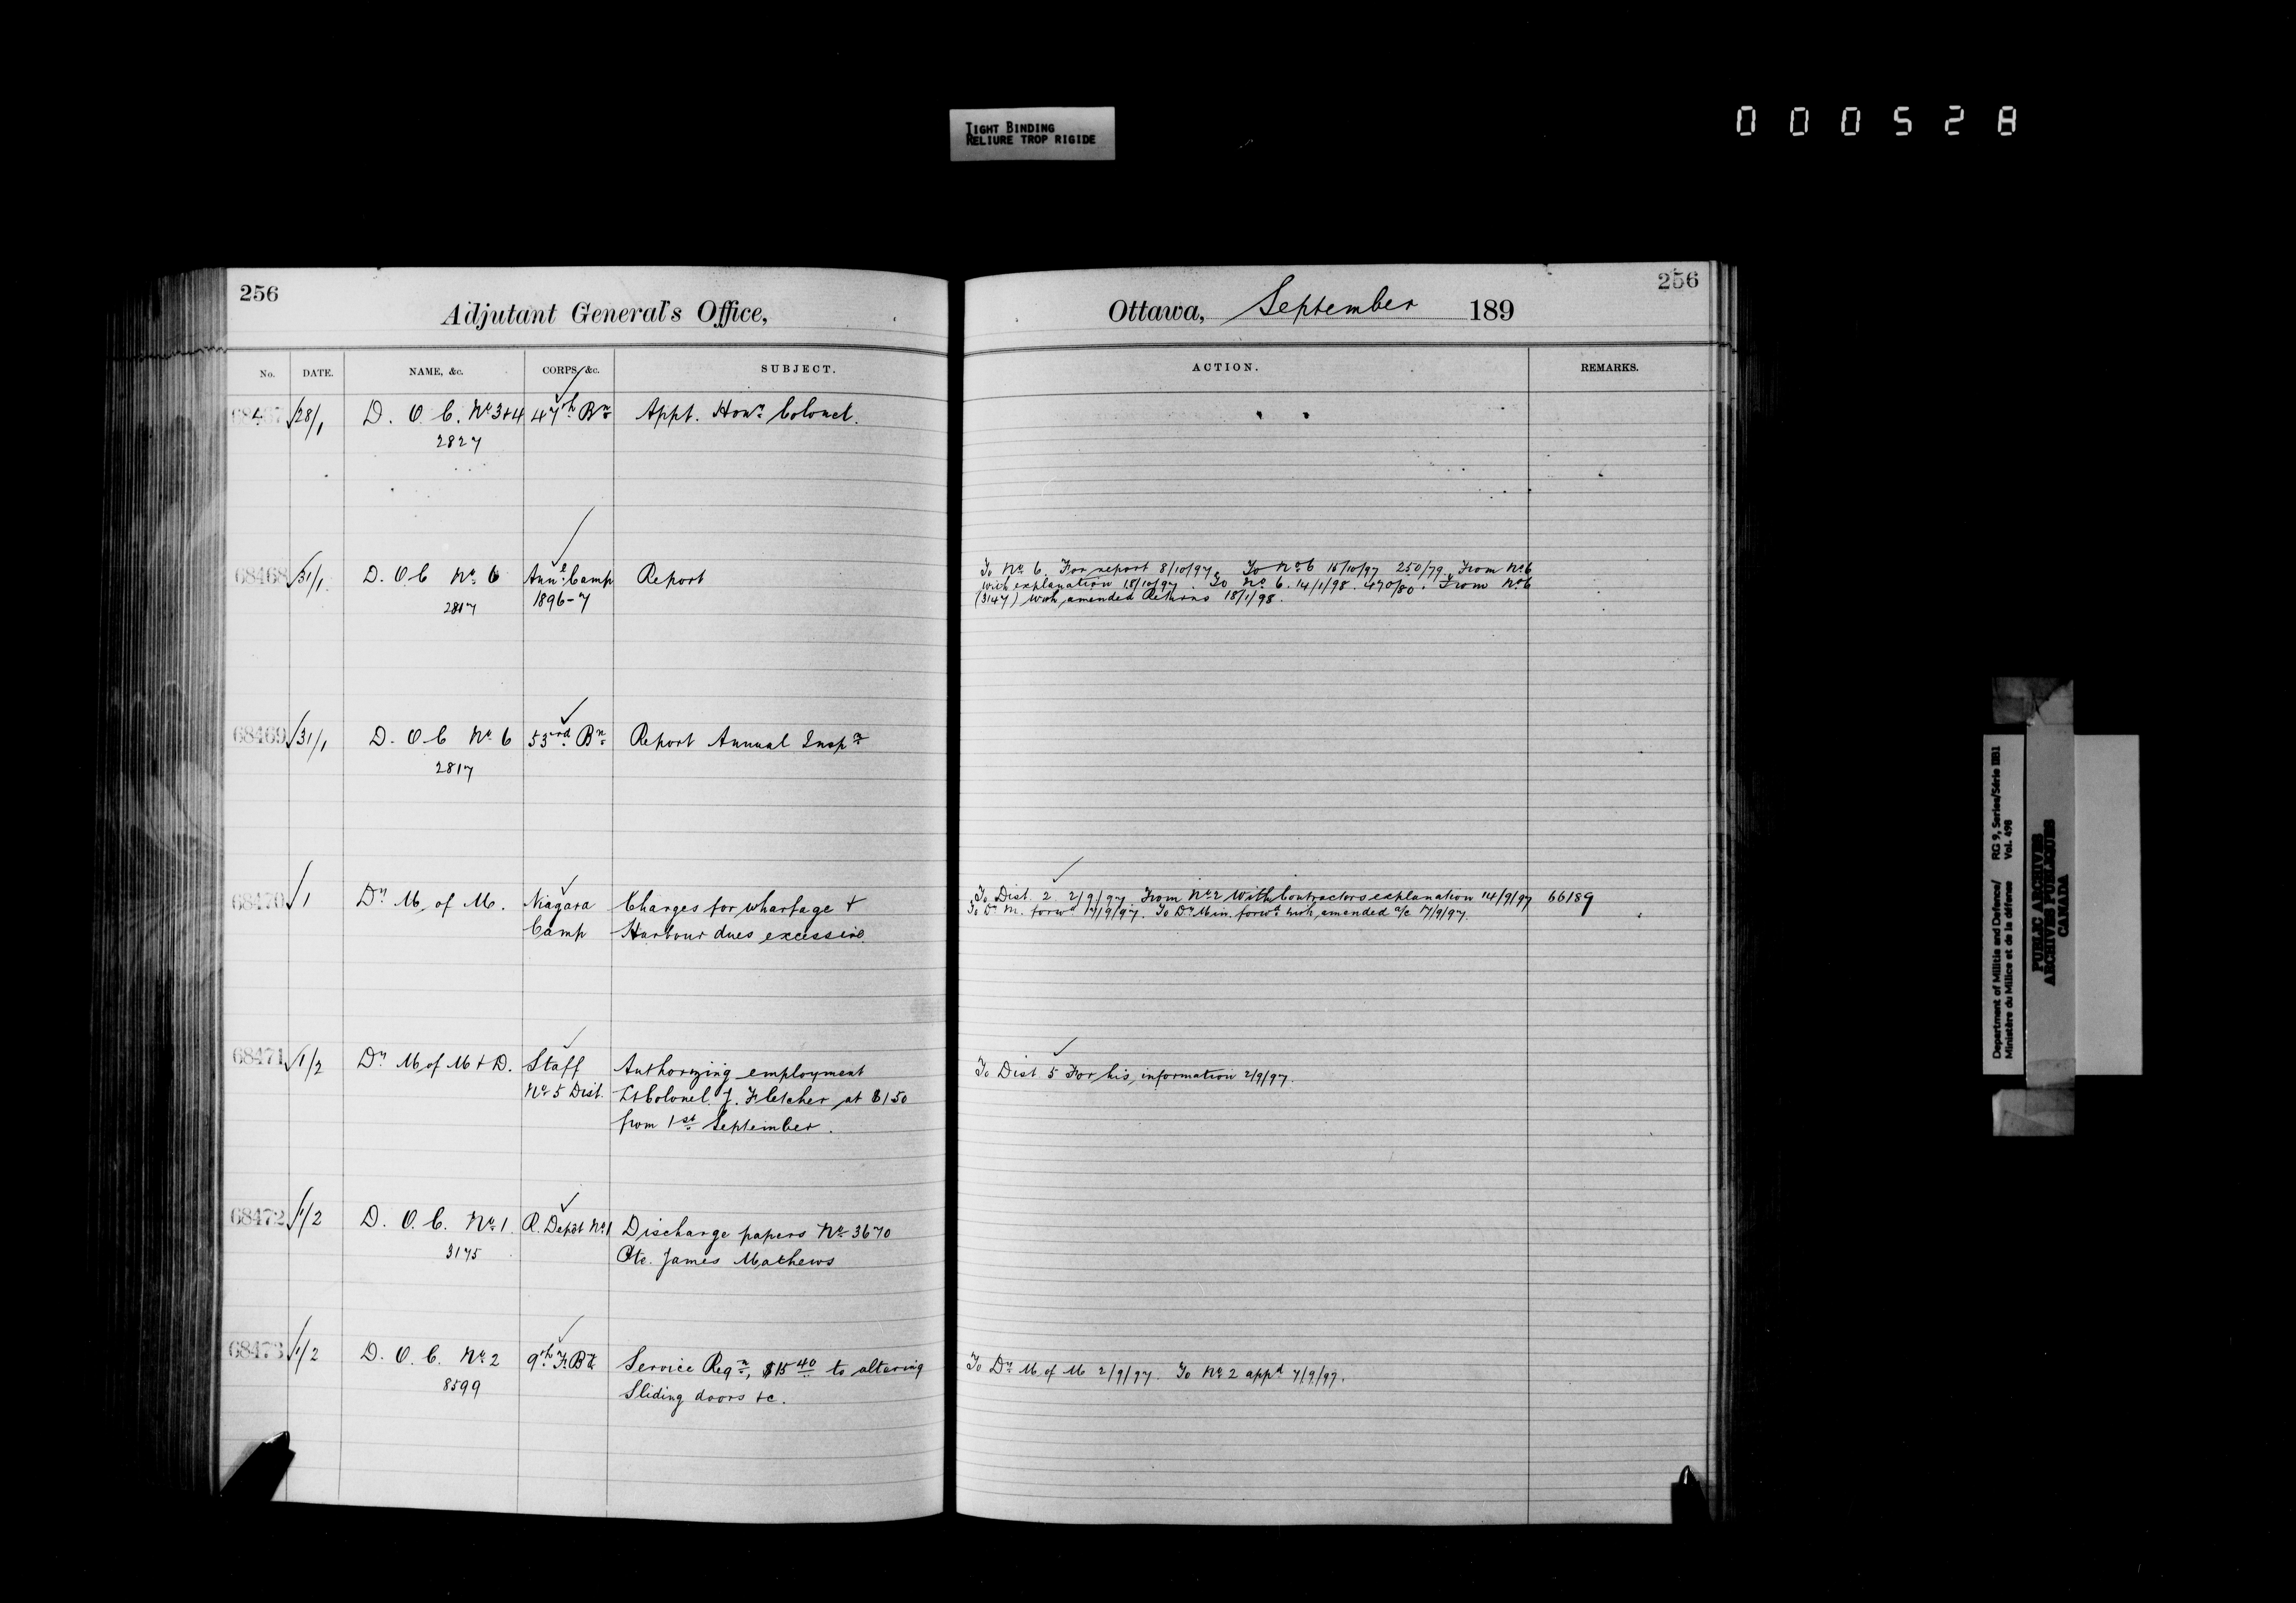 TIGHT BINDING
RELIURE TROP RIGIDE
000528
256
Adjutant General's Office,
No. DATE. NAME, &c. CORPS, &c. SUBJECT.
68467 28/1 D. O. C. No 3+4 47th Bn Appt. Hony Colonel.
2827
68468 31/1 D. O C No 6 Annl Camp Report
2817 1896-7
68469 31/1 D. O C No 6 53rd Bn Report Annual Inspn
2817
68470 1 Dy M of M. Niagara Charges for wharfage +
Camp Harbour dues excessive.
68471 1/2 Dy M of M + D. Staff Authorizing employment
No 5 Dist. Lt Colonel J. Fletcher at $150
from 1st September.
68472 1/2 D. O. C. No 1. R. Depôt No 1 Discharge papers No 3670
3175 Pte. James Mathews
68473 1/2 D. O. C. No 2 9th F. By Service Reqn, $15 40 to altering
8599 Sliding doors &c.
256
Ottawa, September 189
ACTION. REMARKS.
To No 6. For report 8/10/97. To No 6 15/10/97 250/79. From No 6
with explanation 18/10/97. To No 6. 14/1/98. 470/80. From No 6
(3147) with amended Returns 18/1/98.
To Dist. 2. 2/9/97. From No 2 with Contractors explanation 14/9/97 66189
To Dy M. forwd 17/9/97. To Dy Min. forwd with amended a/c 17/9/97.
To Dist. 5 For his information 2/9/97.
To Dy M of M 2/9/97. To No 2 appd 7/9/97.
Department of Militia and Defence/ RG 9, Series/Série IIB1
Ministère du Milice et de la défense Vol. 498
PUBLIC ARCHIVES
ARCHIVES PUBLIQUES
CANADA